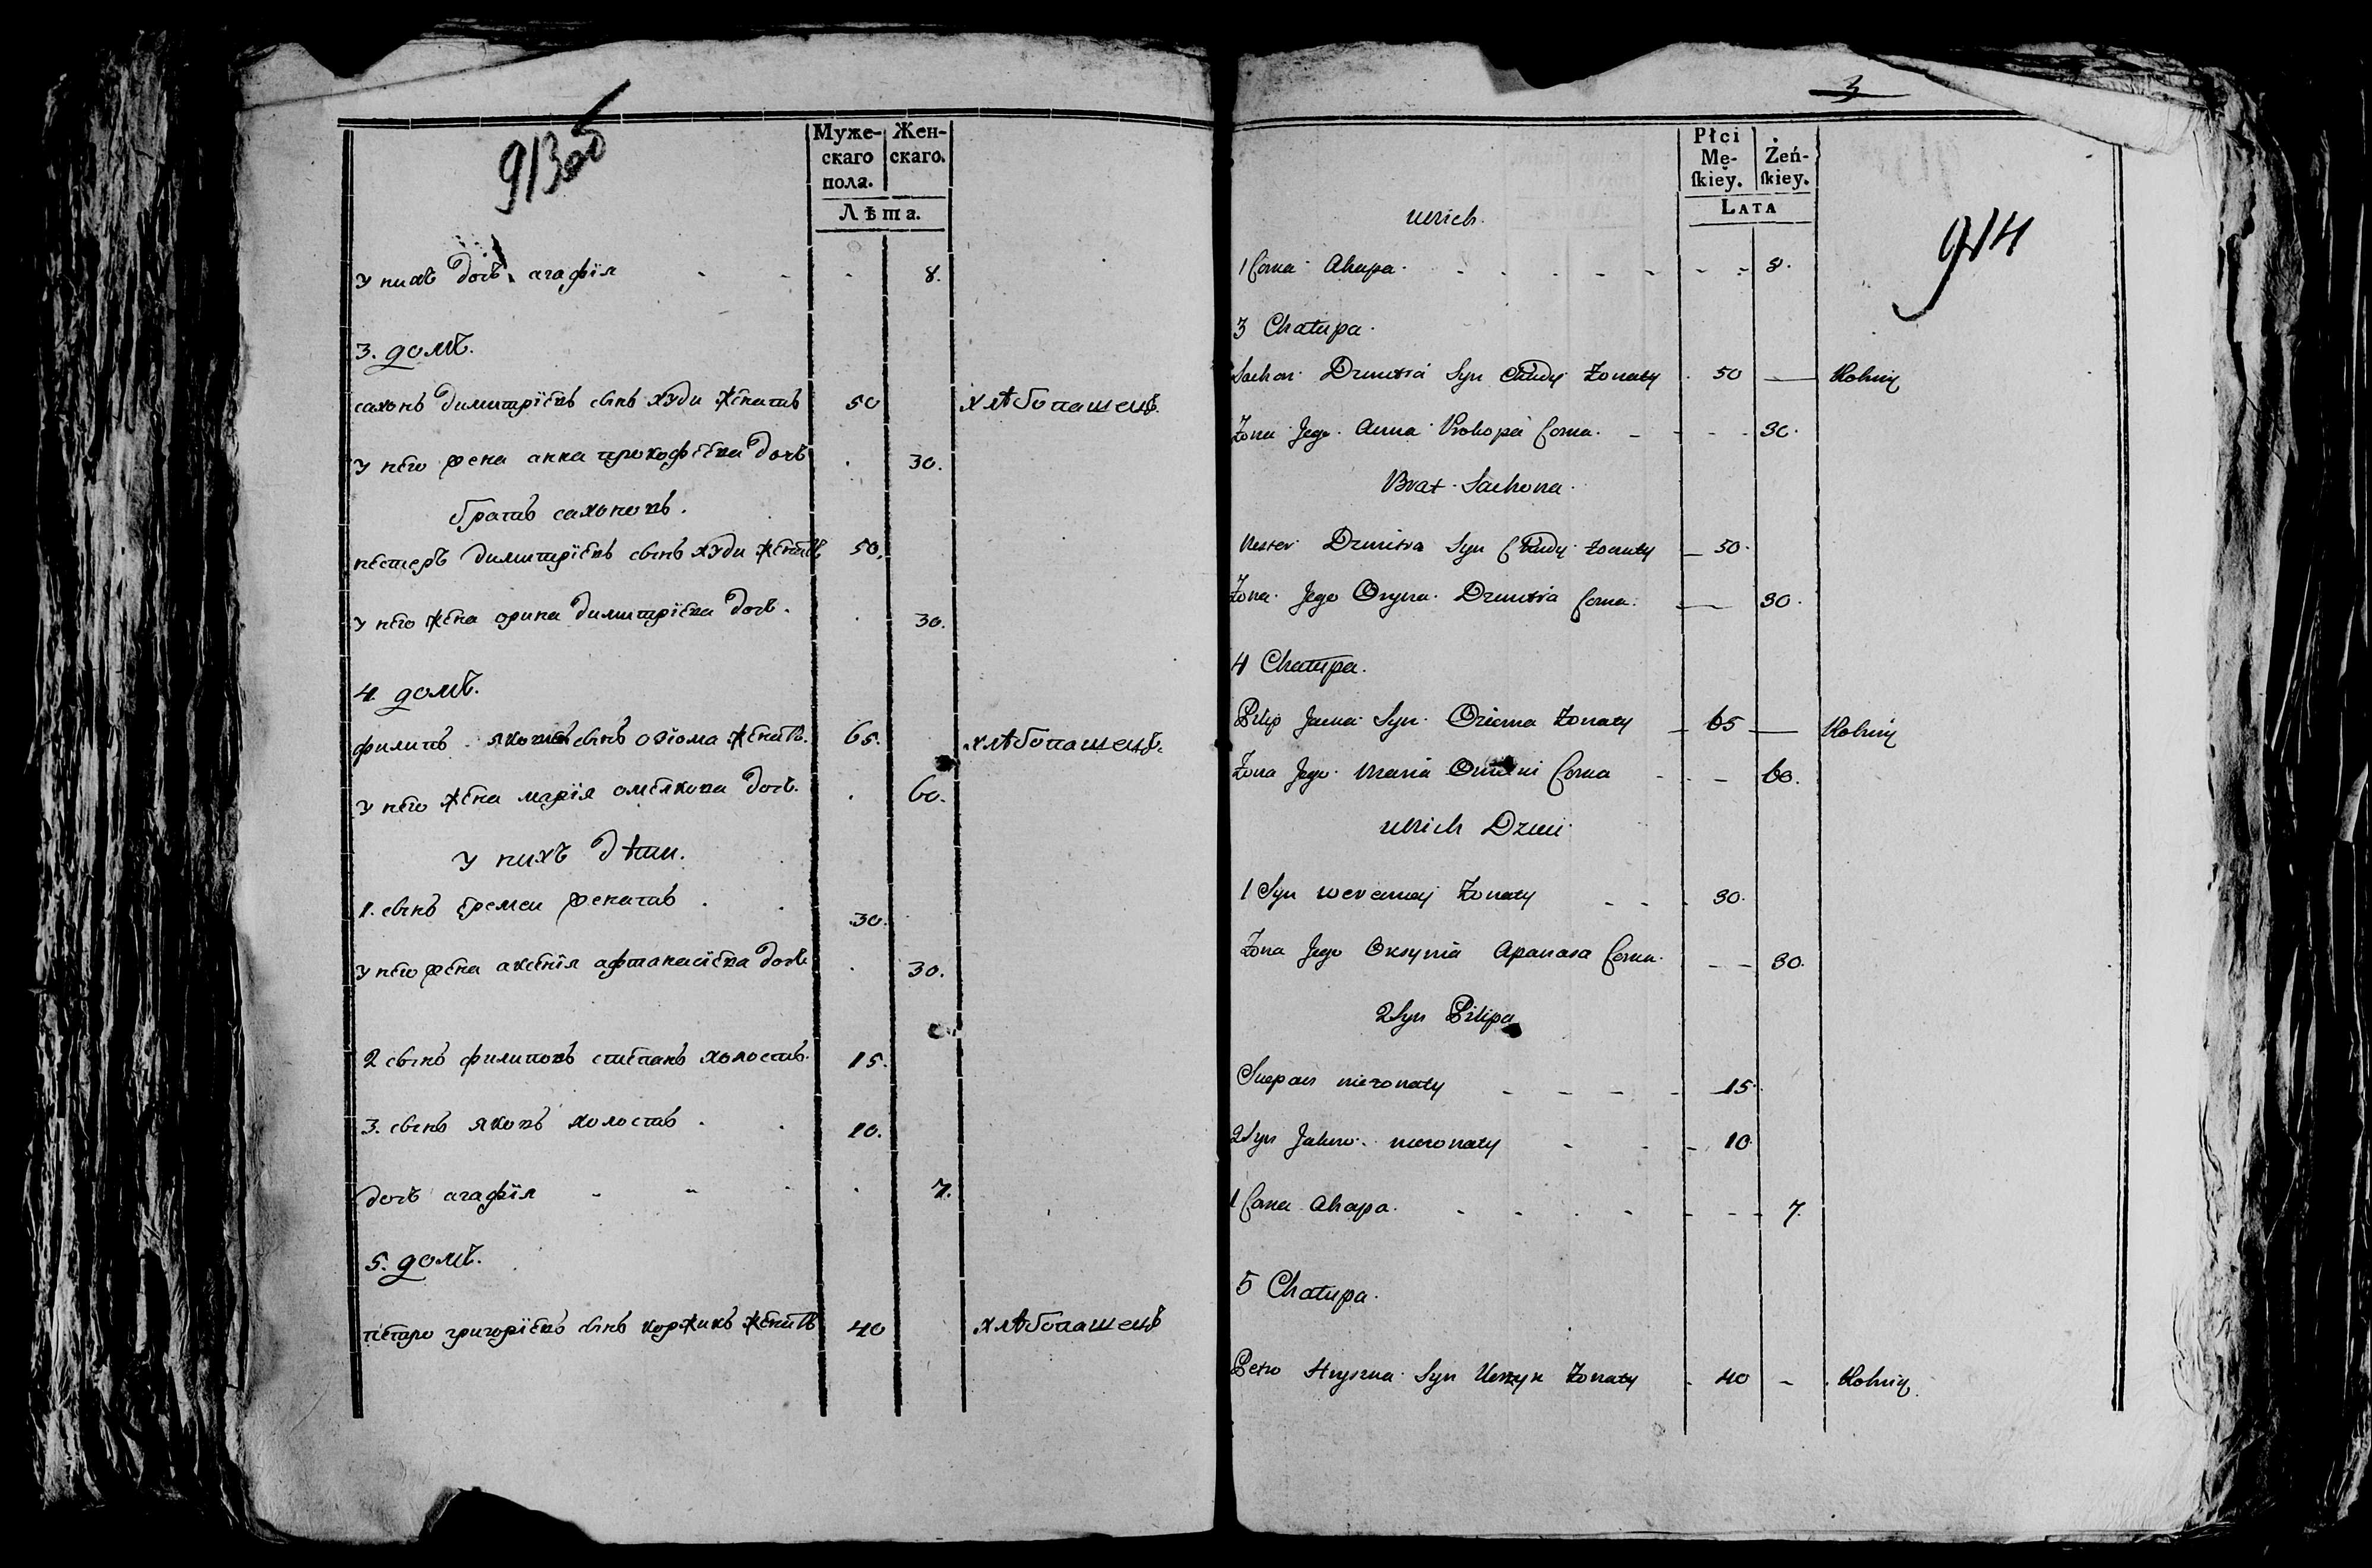 913об
Муже-скаго пола. Жен-скаго.
Лѣта.
У нихъ дочь агафїя 8.
3. домъ.
сахонъ димитрїевъ сынъ худи женатъ 50 хлѣбопашецъ.
У него жена анна прокофїева дочь 30.
братъ сахоновъ.
нестеръ димитрїевъ сынъ худи женатъ 50.
У него жена орина димитрїева дочь. 30.
4 домъ.
филипъ яковлевъ сынъ женатъ. 65. хлѣбопашецъ.
У него жена марїя омелкова дочь. 60.
У нихъ дѣти.
1. сынъ еремеи женатъ 30.
У него жена аксенїя афтанасїева дочь 30.
2 сынъ филиповъ степанъ холостъ. 15.
3. сынъ яковъ холостъ 10.
дочь агафїя 7.
5. домъ.
петро григорїевъ сынъ коржикъ женатъ 40 хлѣбопашецъ
3
Płci Mę-ſkiey. Żeń-ſkiey.
LATA
914
Unich.
1 Corna Ahapa. 8.
3 Chałupa.
Sachon Dzmitra Syn Chudy Żonaty 50 Rolniq
Żona Jego Anna Prokopa Corna. 30.
Brat Sachona.
Nester Dzmitra Syn Chudy Żonaty 50.
Żona Jego Oryna Dzmitra Corna. 30.
4 Chałupa.
Pilip Syn Żonaty 65 Rolniq
Żona Jego Maria Corna 60.
Unich Dzieci
1 Syn Żonaty 30.
Żona Jego Oksynia Apanasa Corna. 30.
2 Syn Pilipa
Sciepan nieżonaty 15.
2 Syn Jakow nieżonaty 10
1 Corna Ahapa. 7.
5 Chałupa.
Petro Syn Żonaty 40 Rolniq